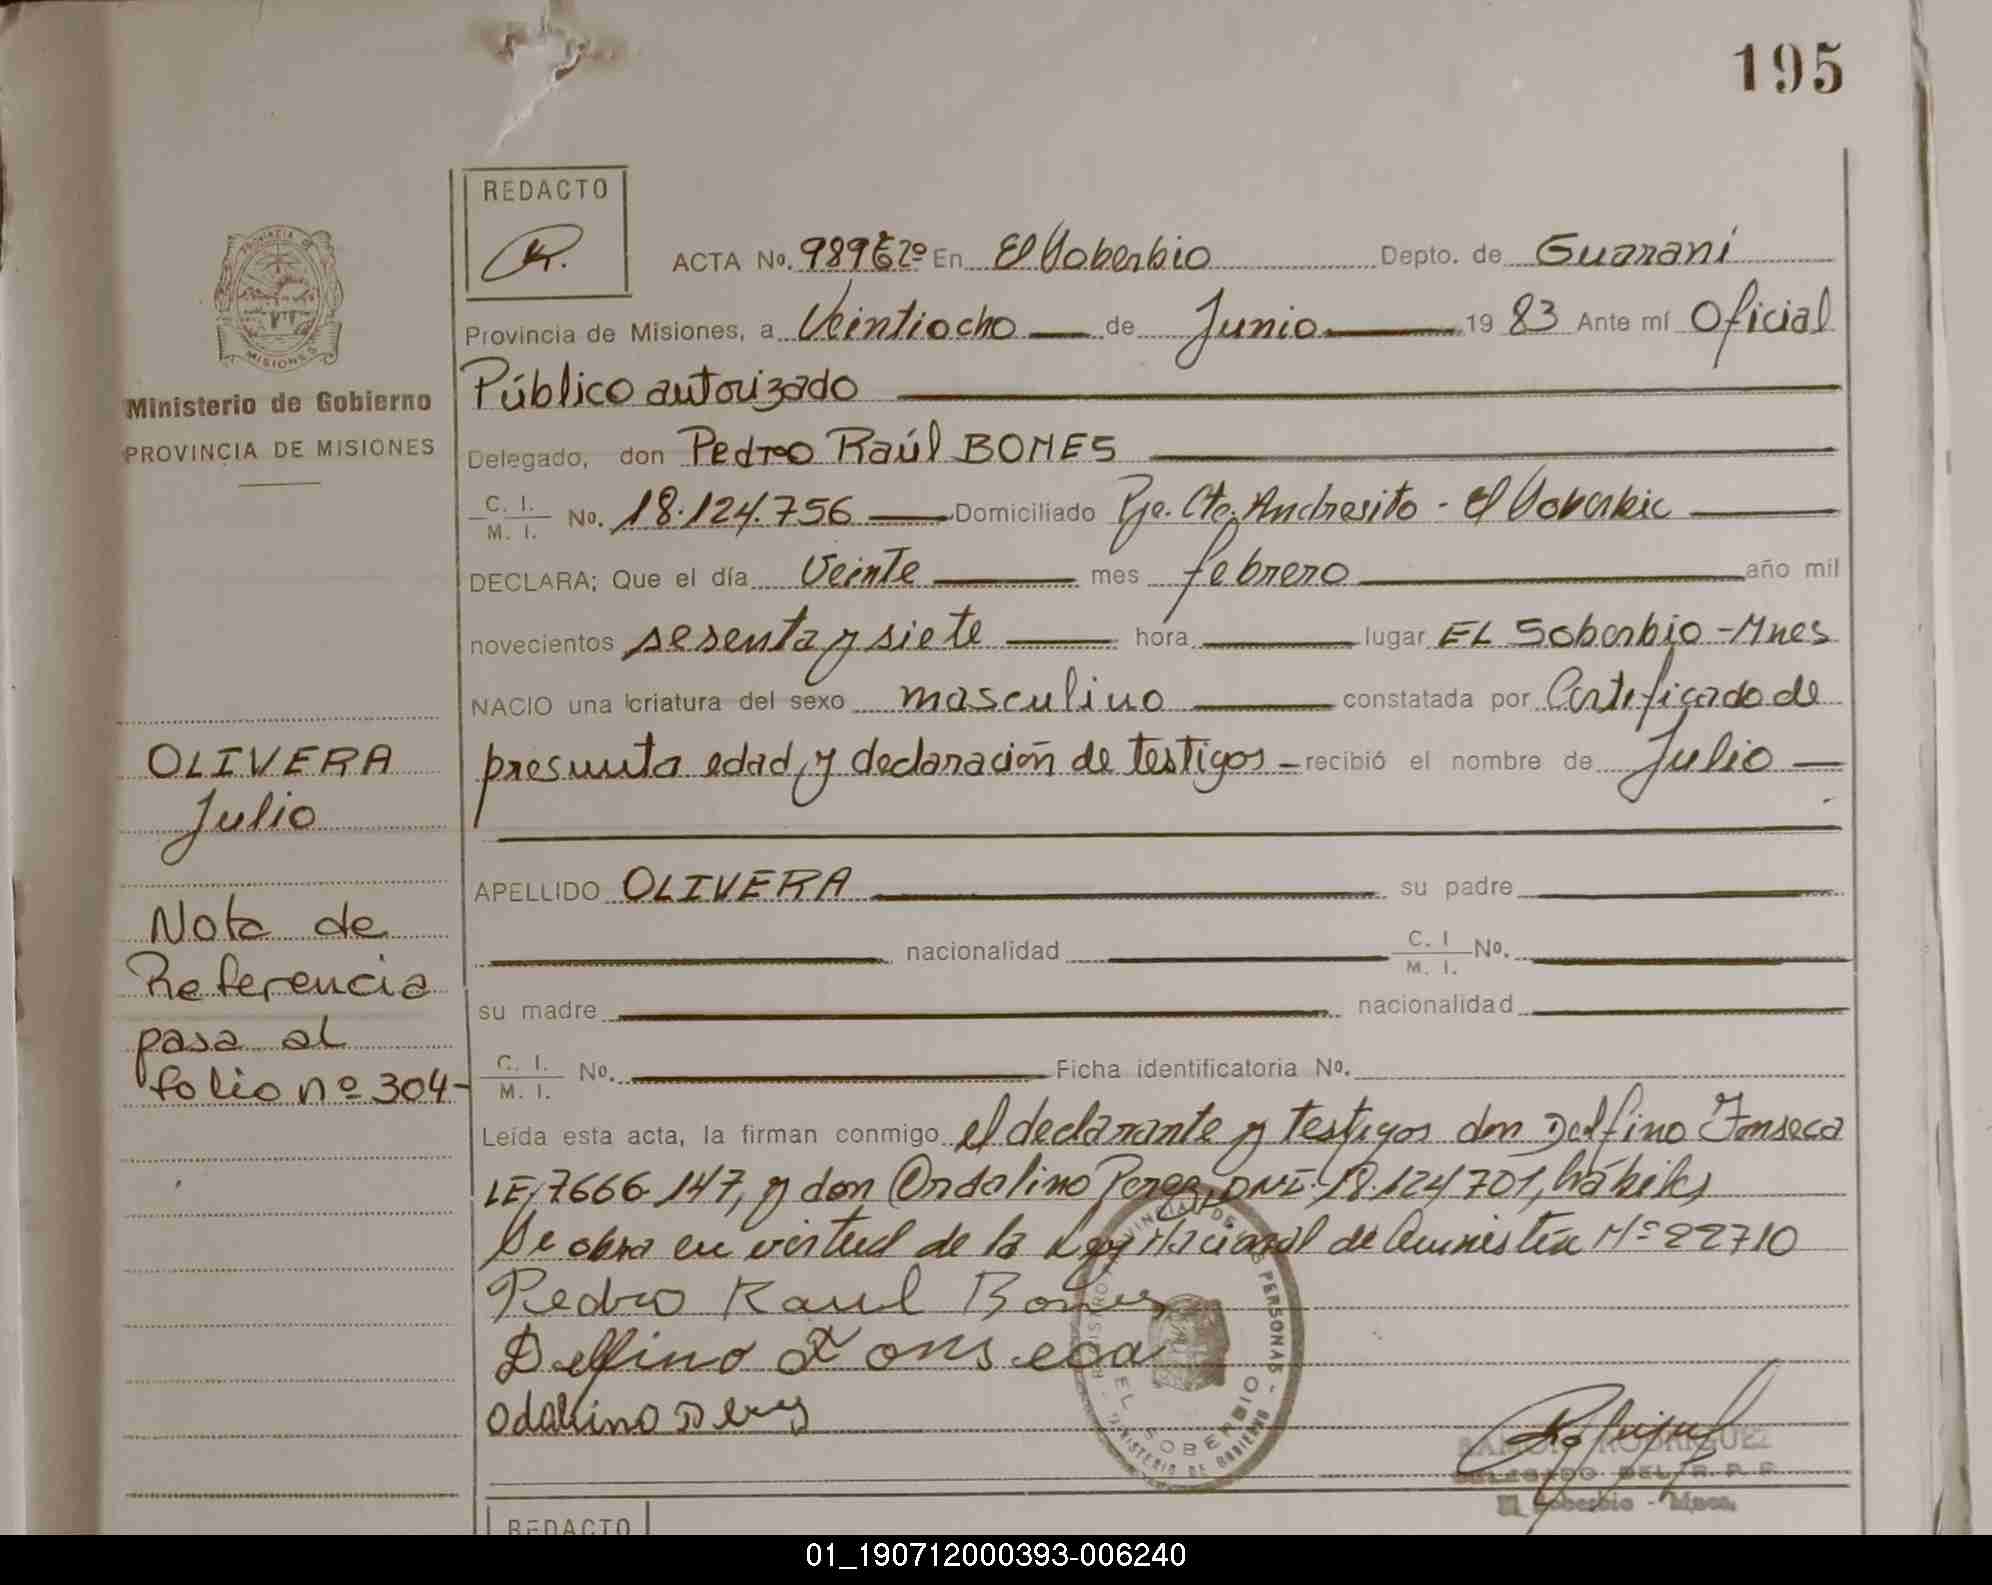 195
REDACTO
ACTA No. 989 En El Soberbio Depto. de Guaraní
Provincia de Misiones, a Veintiocho de Junio 19 83 Ante mí Oficial
Público autorizado
Ministerio de Gobierno
PROVINCIA DE MISIONES
Delegado, don Pedro Raúl BOMES
C. I. M. I. No. 18.124.756 Domiciliado Pje. Cte. Andresito - El Soberbio
DECLARA; Que el día Veinte mes febrero año mil
novecientos sesenta y siete hora lugar EL Soberbio - Mnes
NACIO una criatura del sexo masculino constatada por Certificado de
presunta edad, y declaración de testigos - recibió el nombre de Julio
OLIVERA
Julio
APELLIDO OLIVERA su padre
nacionalidad C. I. M. I. No.
su madre nacionalidad
C. I. M. I. No. Ficha identificatoria No.
Nota de
Referencia
pasa al
folio nº 304-
Leída esta acta, la firman conmigo el declarante y testigos don Delfino Fonseca
LE, 7666.147, y don Ordalino Perez, DNI. 18.124701, hábiles
Se obra en virtud de la Ley Nacional de Amnistía Nº 22710
Pedro Raul Bomes
Delfino Fonseca
PROVINCIAL DE LAS PERSONAS
EL SOBERBIO
MINISTERIO DE GOBIERNO
RAMON RODRIGUEZ
DELEGADO DEL R. P. P.
El Soberbio - Mnes.
REDACTO
01_190712000393-006240